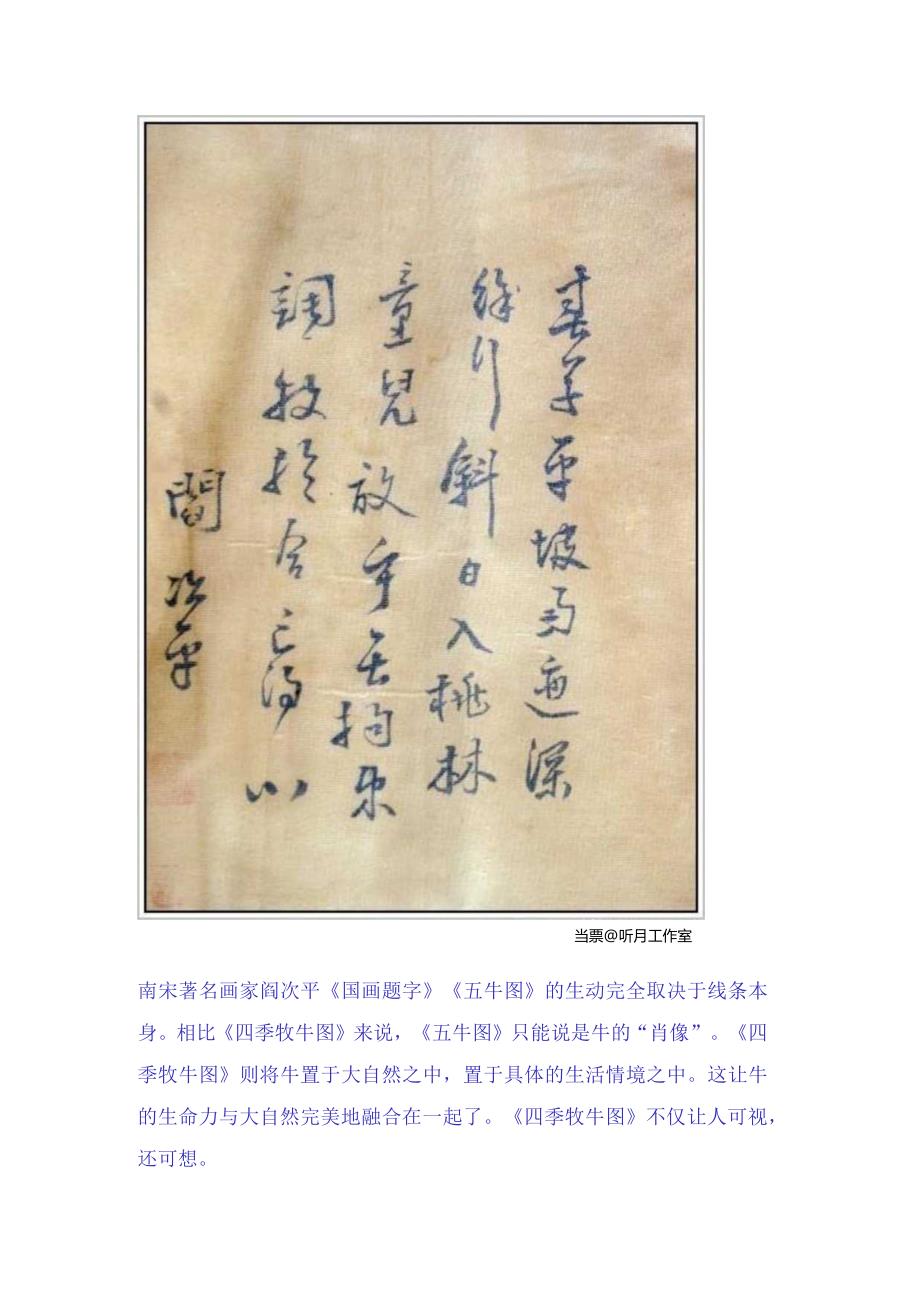 春草平坡雨迹深
徐行斜日入桃林
童兒放手無拘束
調牧於今已得心
閻次平
当票@听月工作室
南宋著名画家阎次平《国画题字》《五牛图》的生动完全取决于线条本
身。相比《四季牧牛图》来说，《五牛图》只能说是牛的“肖像”。《四
季牧牛图》则将牛置于大自然之中，置于具体的生活情境之中。这让牛
的生命力与大自然完美地融合在一起了。《四季牧牛图》不仅让人可视，
还可想。